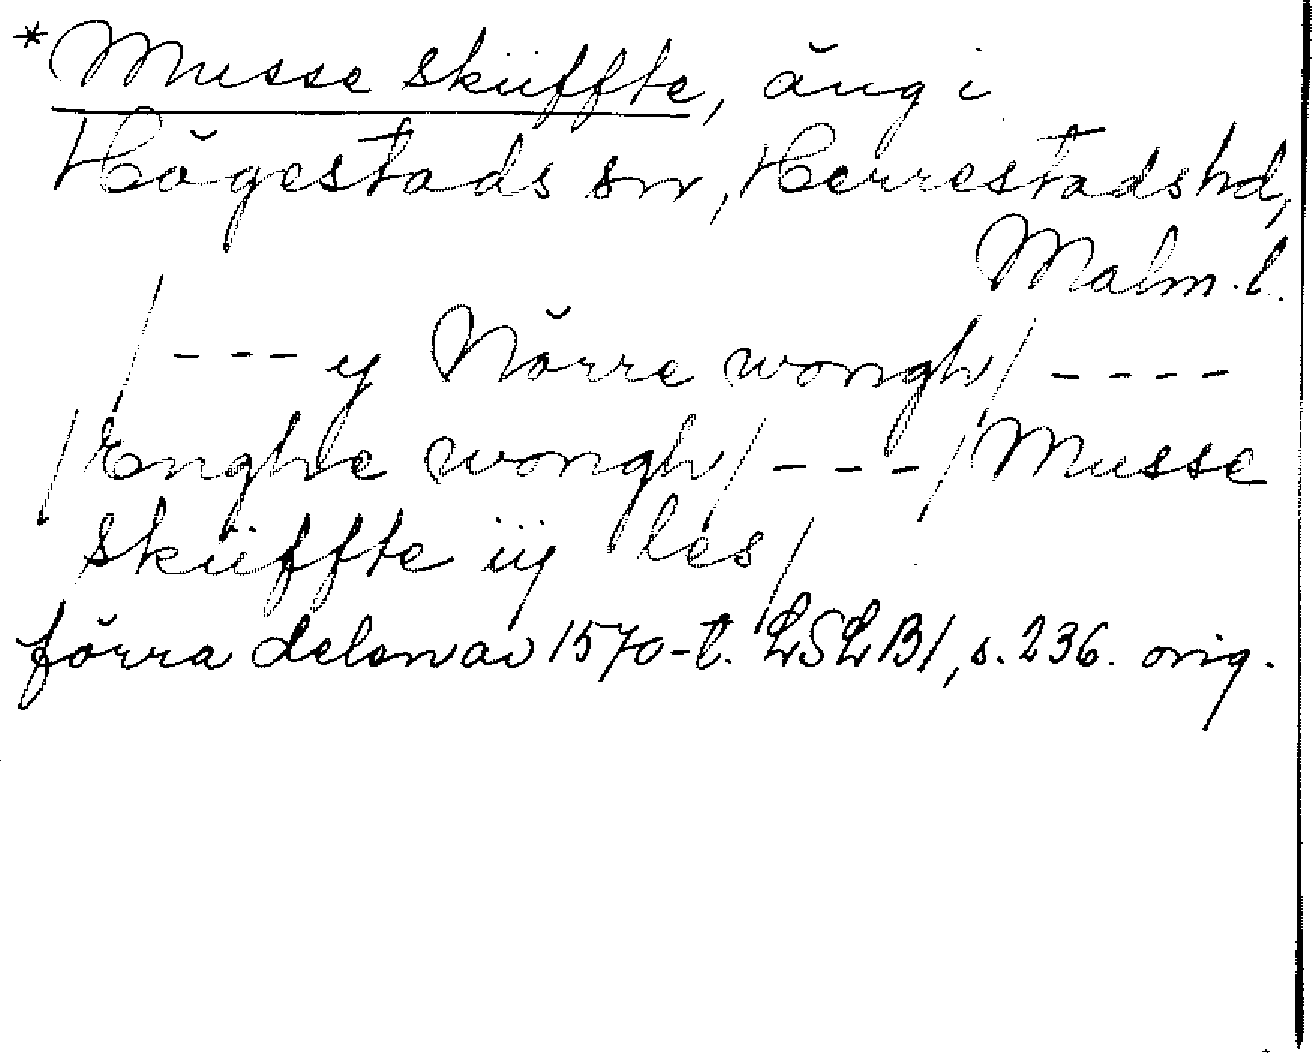 *Musse sküffte, äng i
Högestads sn, Herrestads hd,
Malm. l.
/ - - - y Nörre wongh / - - - -
/ Enghe wongh / - - - / Musse
sküffte iij les /
förra delen av 1570-t. LSLB1, s. 236. orig.